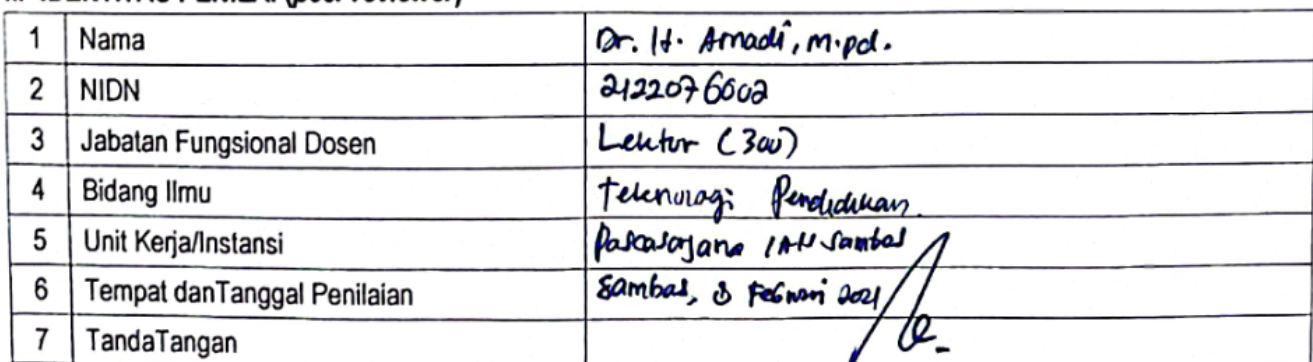 1 Nama Dr. H. Arnadi, M.pd.
2 NIDN 2122076602
3 Jabatan Fungsional Dosen Lektor (300)
4 Bidang Ilmu Teknologi Pendidikan
5 Unit Kerja/Instansi Pascasarjana Sambas
6 Tempat danTanggal Penilaian Sambas, Februari 2021
7 TandaTangan